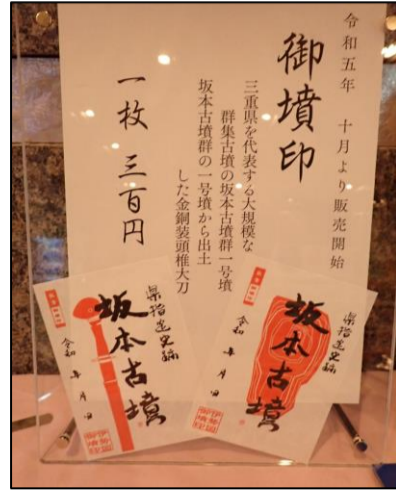 令和五年 十月より販売開始
御墳印
三重県を代表する大規模な
群集古墳の坂本古墳群一号墳
坂本古墳群の一号墳から出土
した金銅装頭椎大刀
一枚 三百円
県指定史跡
坂本古墳
令和 年 月 日
県指定史跡
坂本古墳
令和 年 月 日